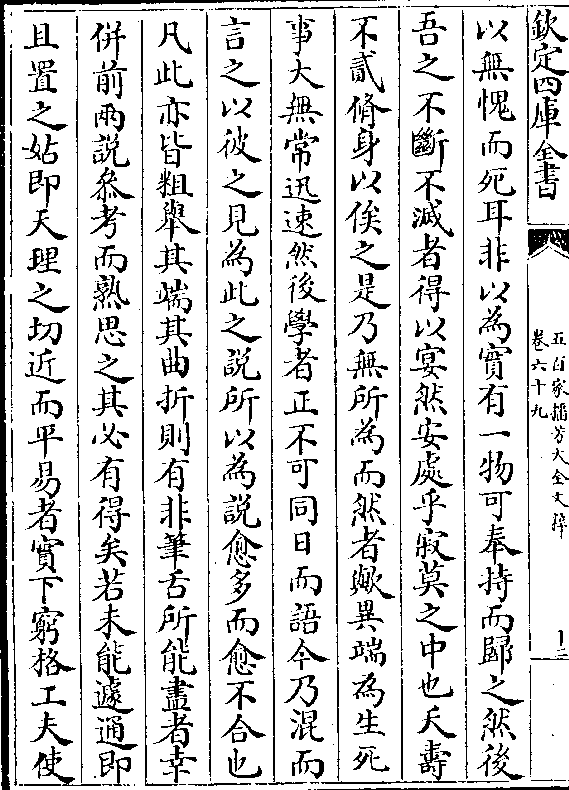 欽定四庫全書
五百家播芳大全文粹
卷六十九
十三
以無愧而死耳非以為實有一物可奉持而歸之然後
吾之不斷不滅者得以宴然安處乎寂莫之中也夭壽
不貳脩身以俟之是乃無所為而然者歟異端為生死
事大無常迅速然後學者正不可同日而語今乃混而
言之以彼之見為此之說所以為說愈多而愈不合也
凡此亦皆粗舉其端其曲折則有非筆舌所能盡者幸
併前兩說叅考而熟思之其必有得矣若未能遽通即
且置之姑即天理之切近而平易者實下窮格工夫使